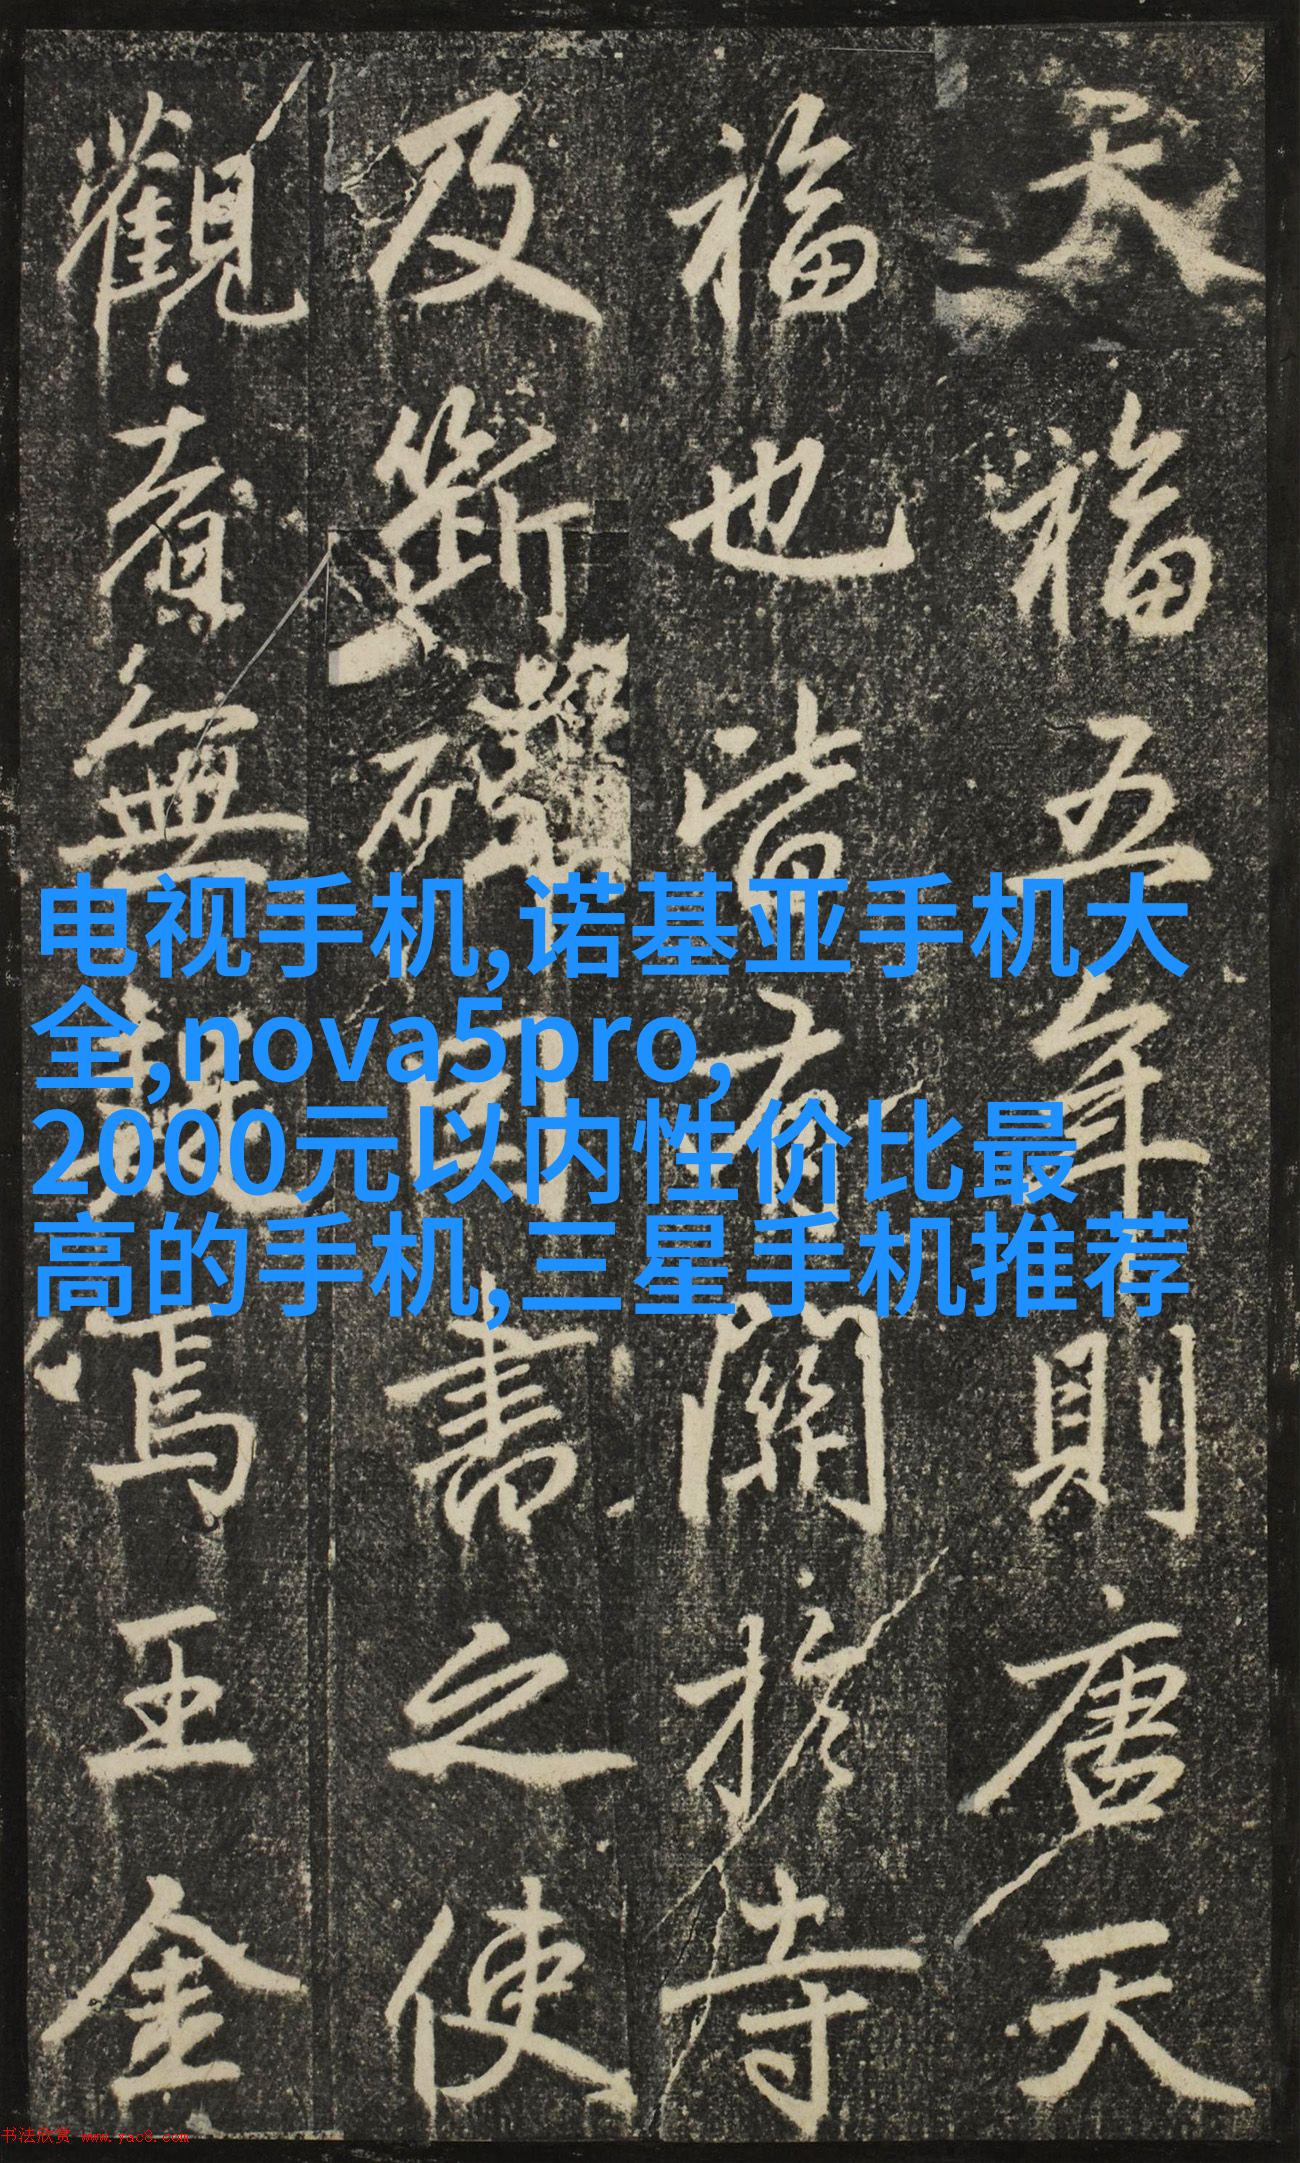 天福五年則唐天
福也皆有關扵寺
及斷因書之使
觀者無疑焉王金
电视手机,诺基亚手机大
全,nova5pro,
2000元以内性价比最
高的手机,三星手机推荐
书法欣赏 www.yac8.com